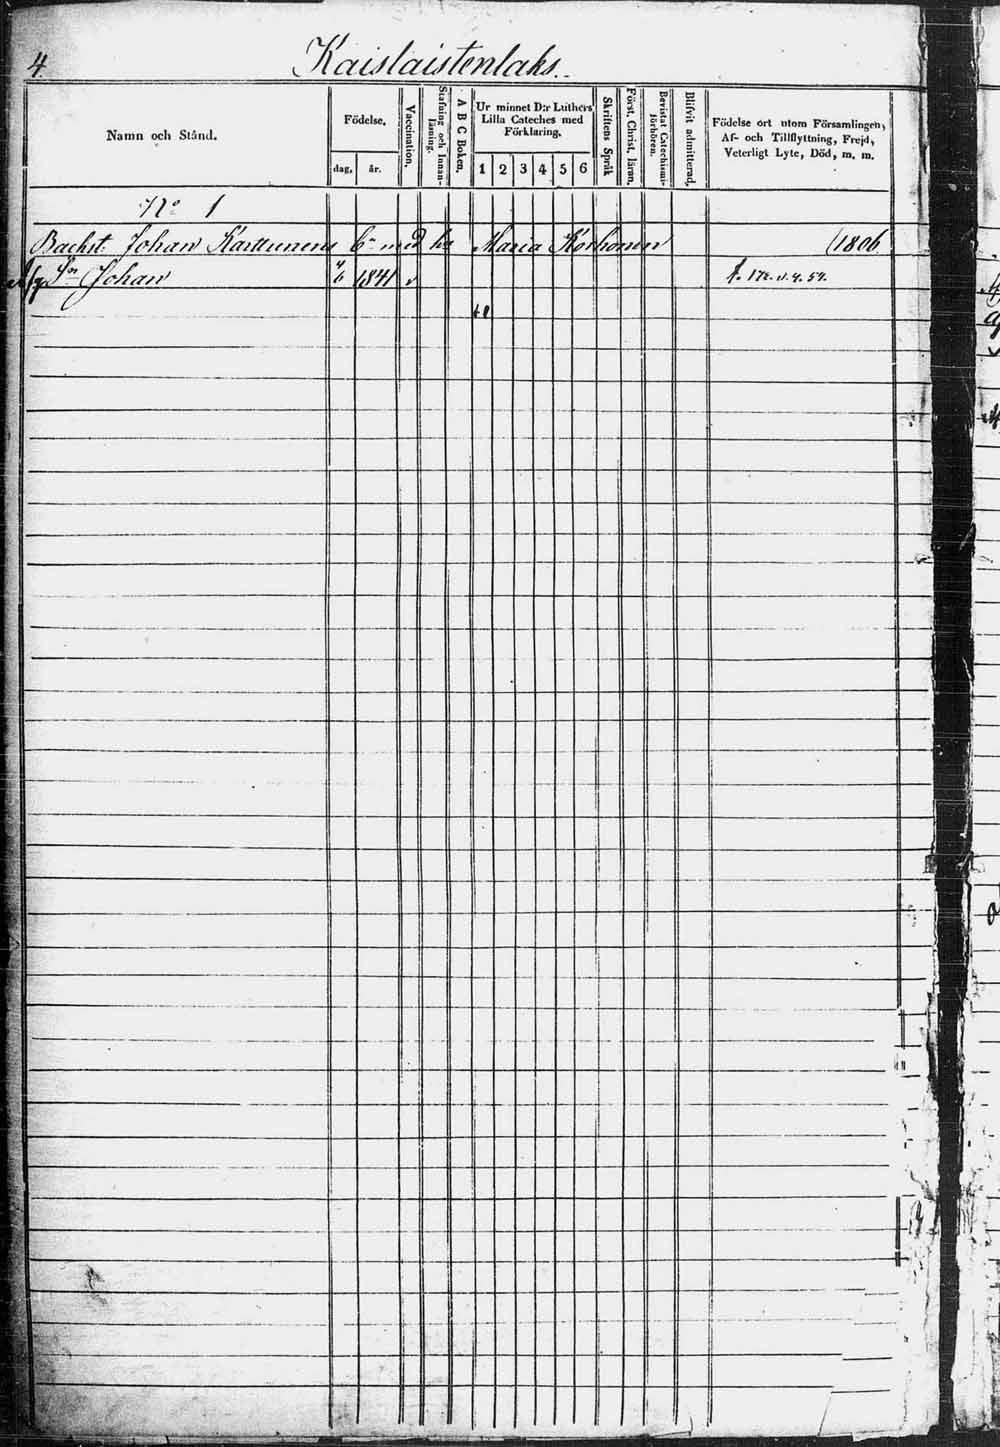 4
Kaislaistenlaks
Namn och Stånd.
Födelse.
dag.
år.
Vaccination.
Stafning och Innan-
läsning.
A B C Boken.
Ur minnet D:r Luthers
Lilla Cateches med
Förklaring.
1 2 3 4 5 6
Skriftens Språk
Först. Christ. läran.
Bevistat Catechismi-
förhören.
Blifvit admitterad.
Födelse ort utom Församlingen,
Af- och Tillflyttning, Frejd,
Veterligt Lyte, Död, m. m.
No 1
Backst. Johan Karttunens med Maria Korhonen (1806
Sn Johan 1841 v